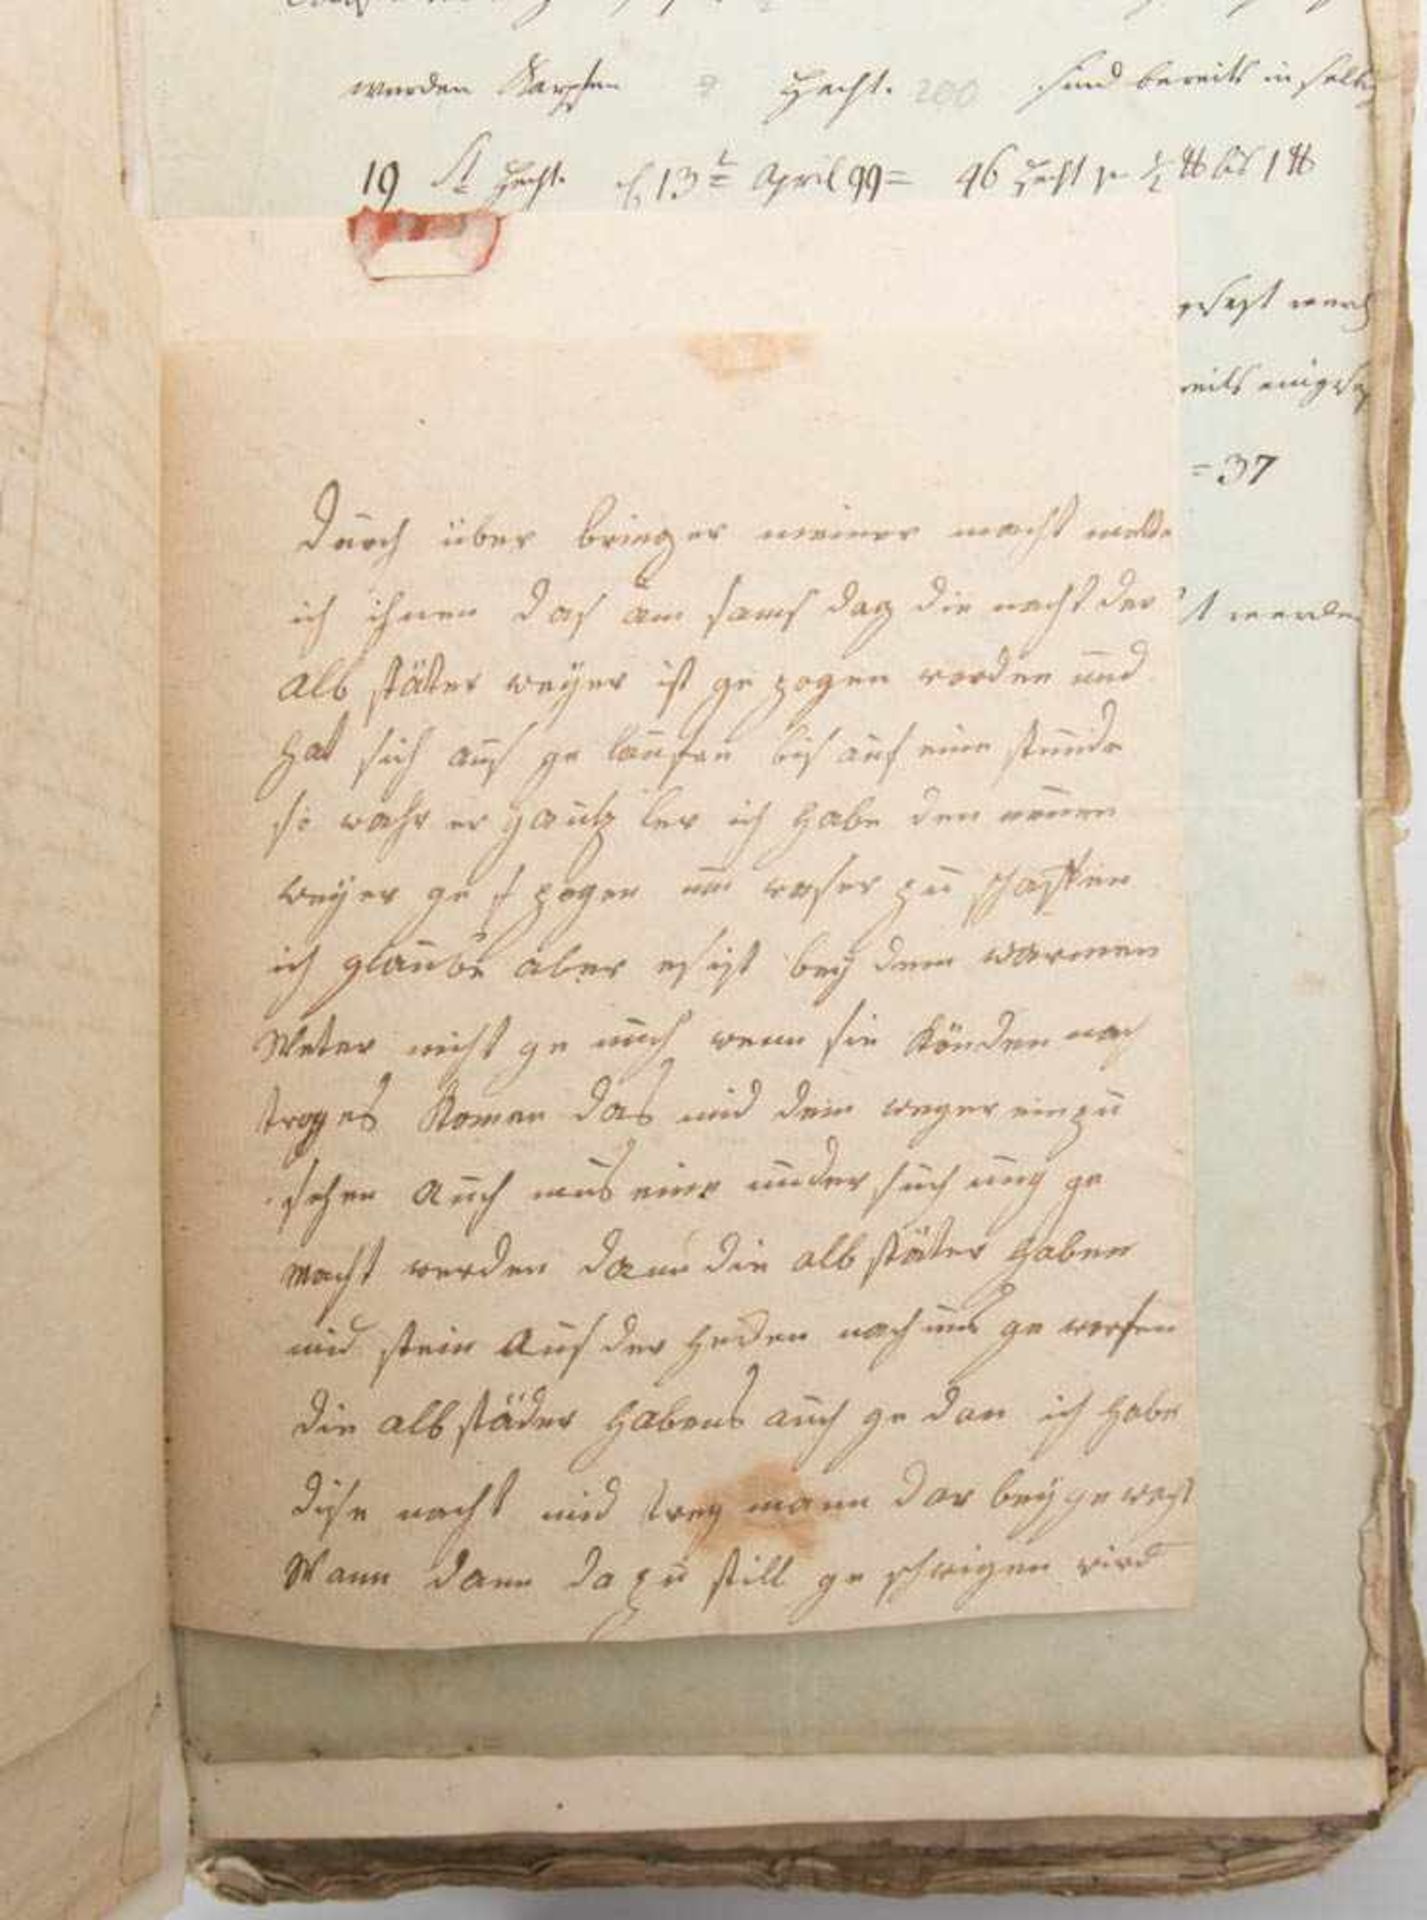 werden Karpfen Hecht. 200 sind bereits in selbig
19 St Hecht. 13t April 99= 46 Hecht zu ½ ℔ bis 1 ℔
gesezt werd
reits eingesez
=37
t werden
Durch über bringer meiner macht melde
ich ihnen das am sams dag die nacht der
alb stäter weÿer ist ge zogen worden und
hat sich aus ge laufen bis auf eine stunde
so wahr er gantz ler ich habe den neuen
weÿer ge zogen um waser zu schaffen
ich glaube aber es ist beÿ dem warmen
Weter nicht ge nuch wenn sie könden
Komen das mid dem weyer ein zu
sehen Auch mus eine under such ung ge
macht werden dann die alb stäter haben
mid stein Auf der heden nach uns ge worfen
die alb städer habens auch ge dan ich habe
dise nacht mid zwey mann dar beÿ ge west
Wann dann da zu still ge schwigen wird